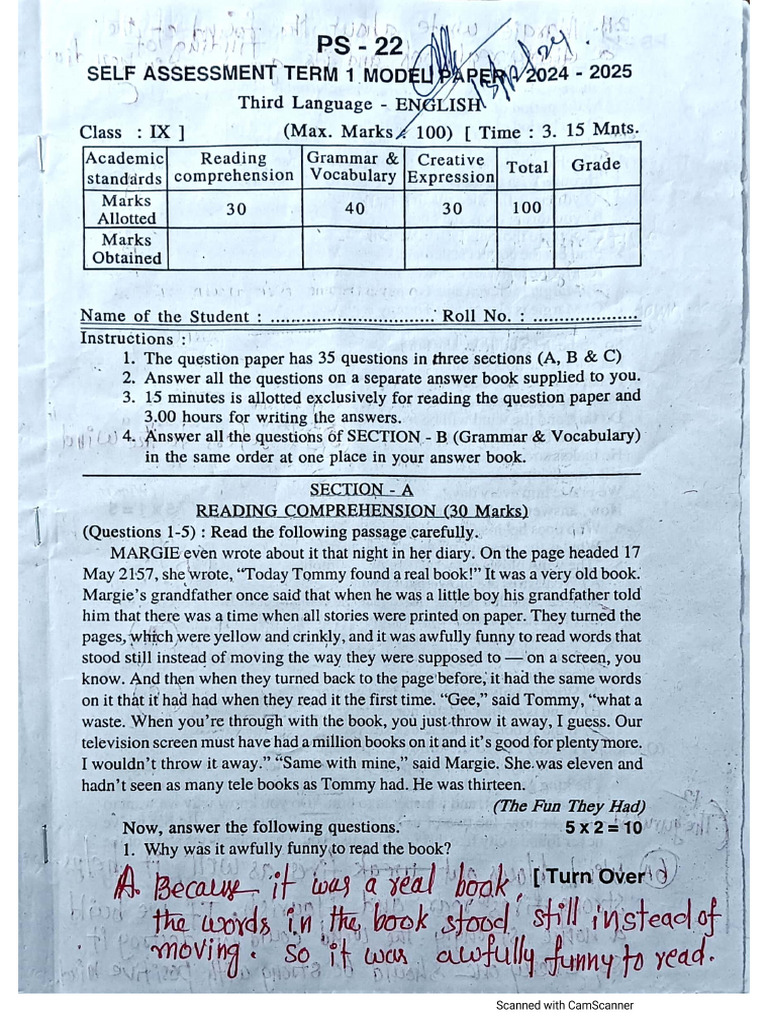 PS - 22
SELF ASSESSMENT TERM 1 MODEL PAPER 2024 - 2025
Third Language - ENGLISH
Class : IX ] (Max. Marks : 100) [ Time : 3. 15 Mnts.
Academic standards Reading comprehension Grammar & Vocabulary Creative Expression Total Grade
Marks Allotted 30 40 30 100
Marks Obtained
Name of the Student : ................................. Roll No. : ......................
Instructions :
1. The question paper has 35 questions in three sections (A, B & C)
2. Answer all the questions on a separate answer book supplied to you.
3. 15 minutes is allotted exclusively for reading the question paper and
3.00 hours for writing the answers.
4. Answer all the questions of SECTION - B (Grammar & Vocabulary)
in the same order at one place in your answer book.
SECTION - A
READING COMPREHENSION (30 Marks)
(Questions 1-5) : Read the following passage carefully.
MARGIE even wrote about it that night in her diary. On the page headed 17
May 2157, she wrote, “Today Tommy found a real book!” It was a very old book.
Margie’s grandfather once said that when he was a little boy his grandfather told
him that there was a time when all stories were printed on paper. They turned the
pages, which were yellow and crinkly, and it was awfully funny to read words that
stood still instead of moving the way they were supposed to — on a screen, you
know. And then when they turned back to the page before, it had the same words
on it that it had had when they read it the first time. “Gee,” said Tommy, “what a
waste. When you’re through with the book, you just throw it away, I guess. Our
television screen must have had a million books on it and it’s good for plenty more.
I wouldn’t throw it away.” “Same with mine,” said Margie. She was eleven and
hadn’t seen as many tele books as Tommy had. He was thirteen.
(The Fun They Had)
Now, answer the following questions. 5 x 2 = 10
1. Why was it awfully funny to read the book?
[ Turn Over
A. Because it was a real book,
the words in the book stood still instead of
moving. so it was awfully funny to read.
Scanned with CamScanner